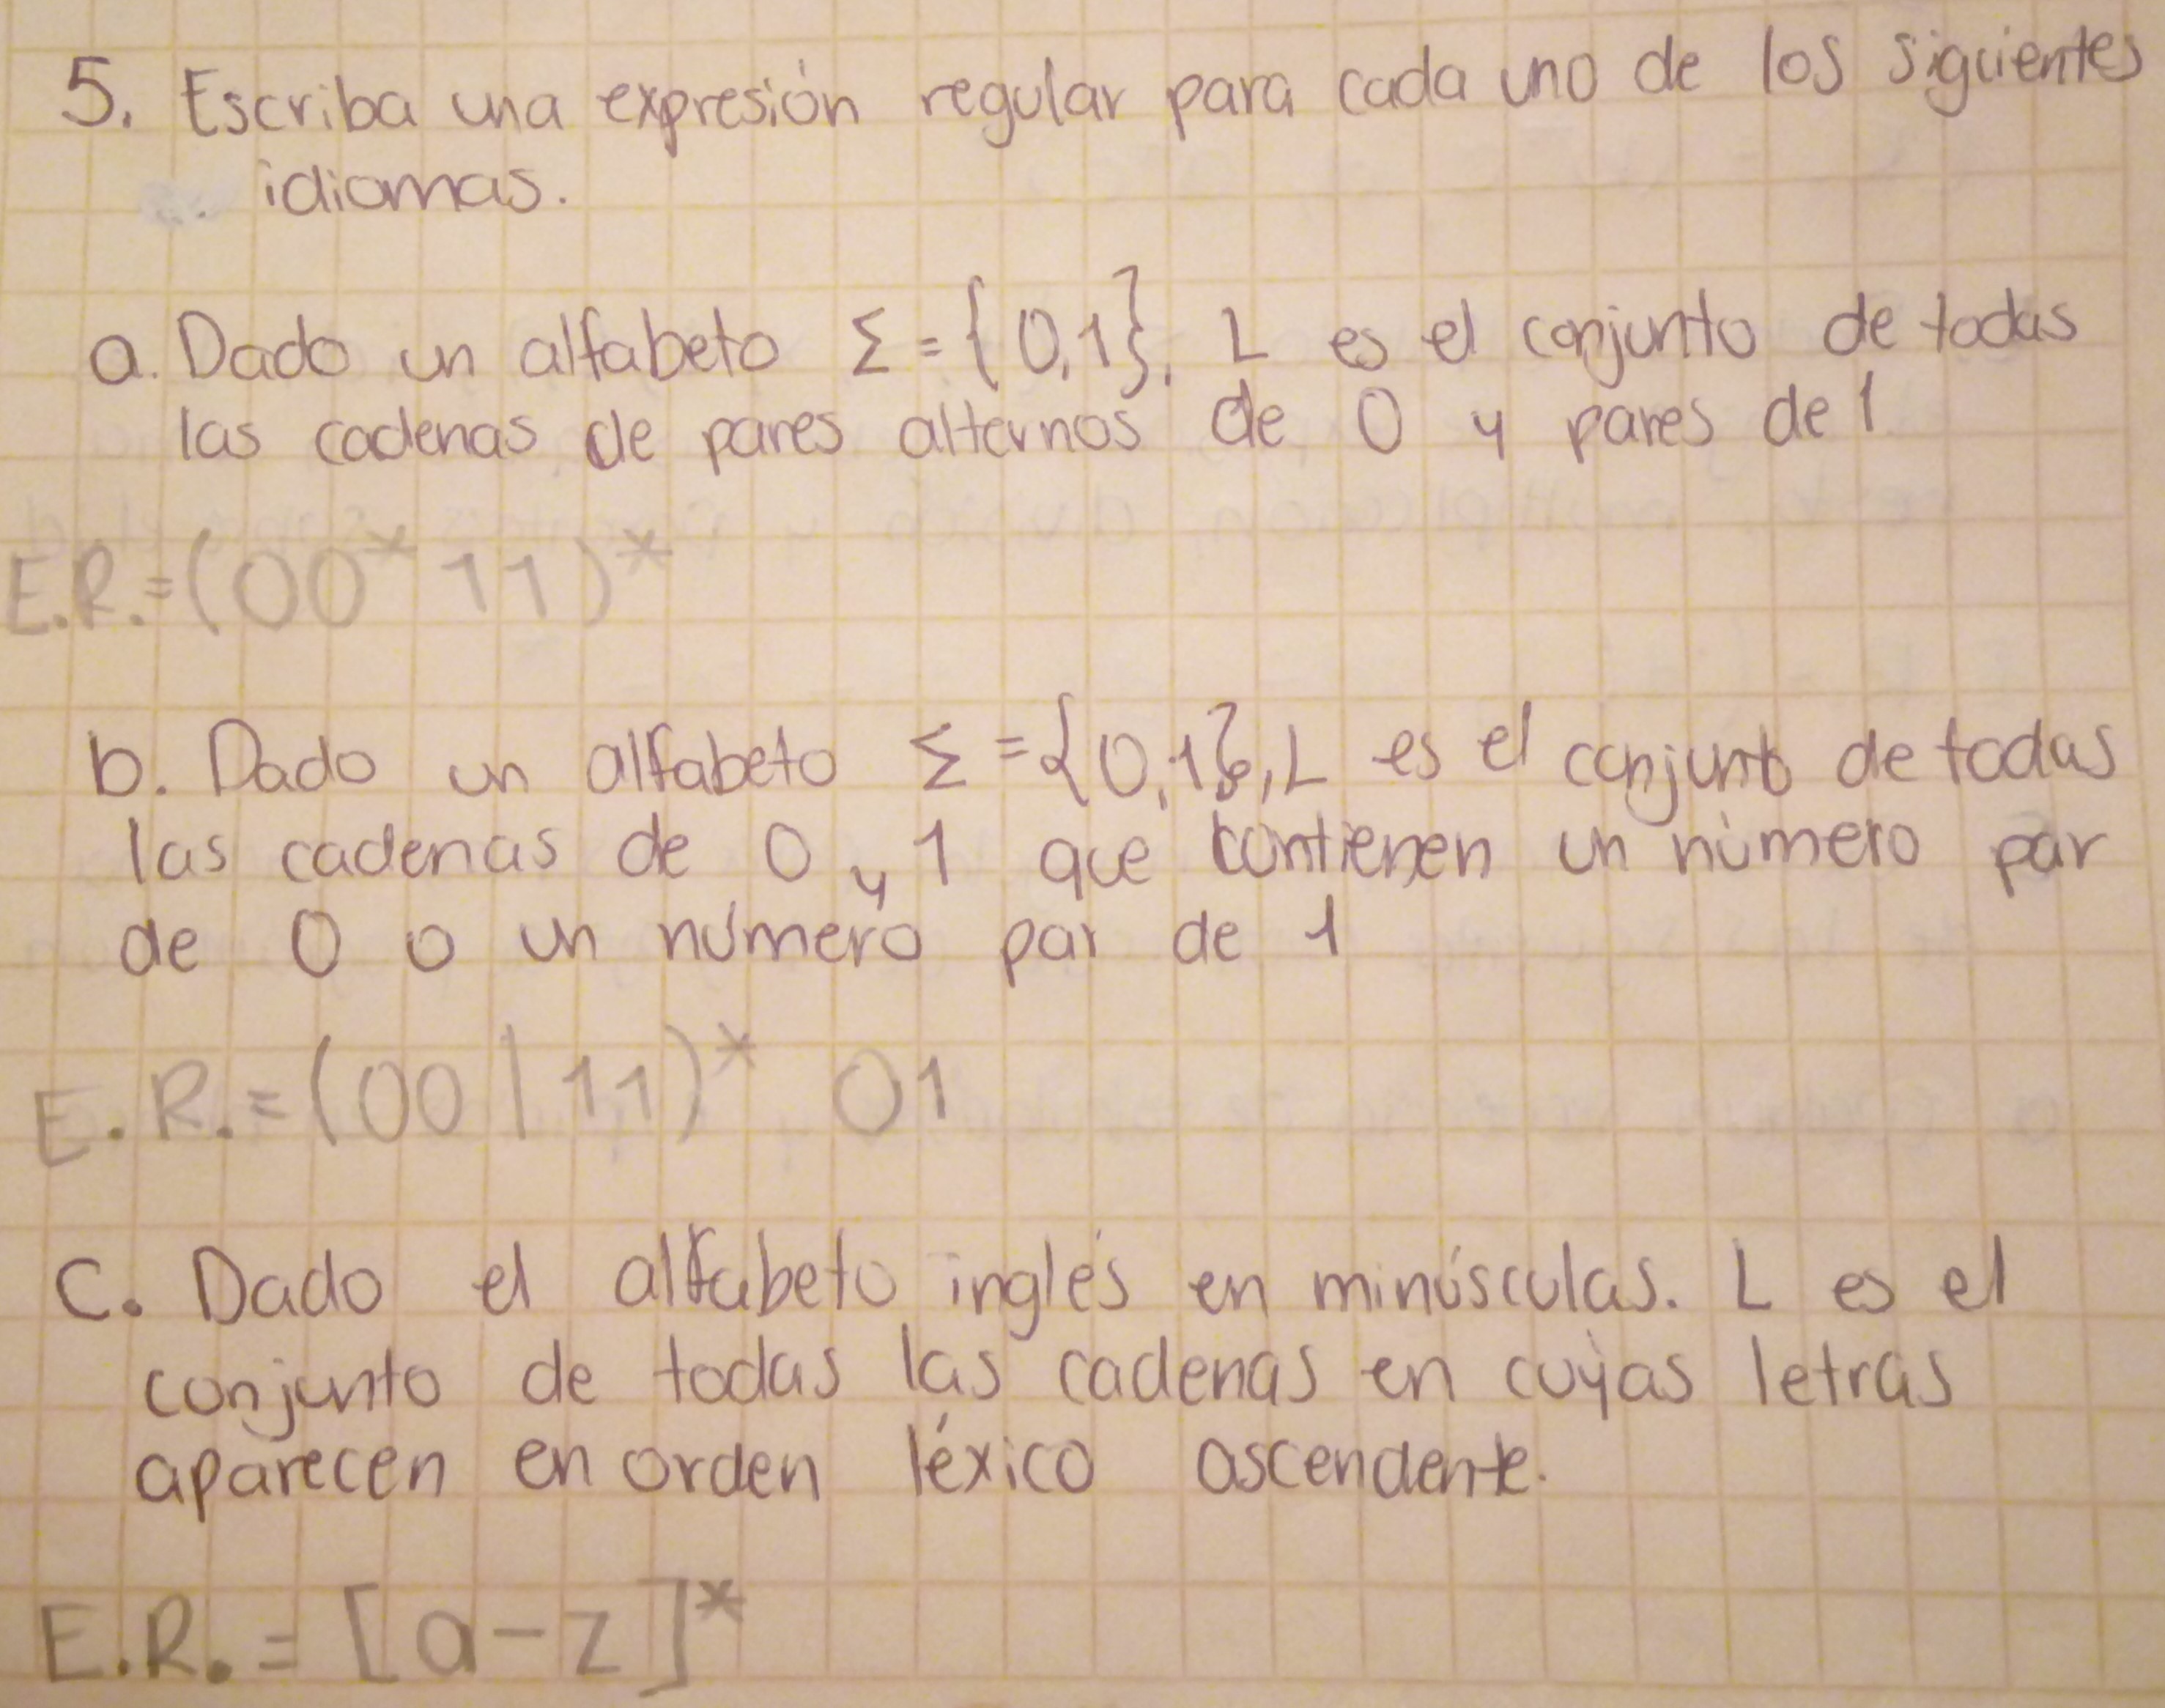 5. Escriba una expresión regular para cada uno de los siguientes
idiomas.
a. Dado un alfabeto Σ = {0,1}. L es el conjunto de todas
las cadenas de pares alternos de 0 y pares de 1
E.R.=(00* 11)*
b. Dado un alfabeto Σ ={0,1}, L es el conjunto de todas
las cadenas de 0 y 1 que contienen un número par
de 0 o un número par de 1
E.R.=(00|11)* 01
C. Dado el alfabeto inglés en minúsculas. L es el
conjunto de todas las cadenas en cuyas letras
aparecen en orden léxico ascendente.
E.R. = [a-z]*